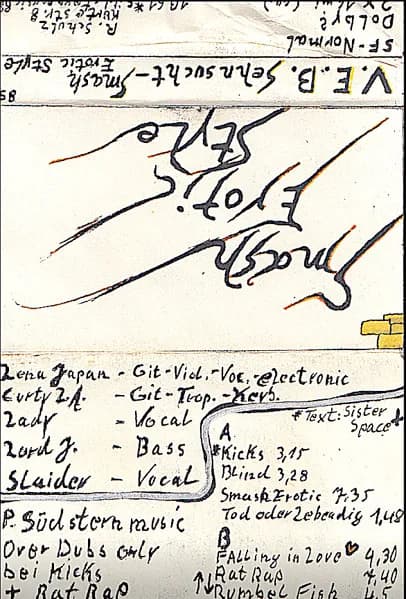 R. Schulz
Kurtze str. 8
SF-Normal
Dolby
V.E.B. Sehnsucht - Smash
Erotic Style
85
Smash
Erotic
Style
Zena Japan - Git-Viol.-Voc.-electronic
Curty L.A. - Git-Trop.-Kerb.
Lady - Vocal
Lord J. - Bass
Slaider - Vocal
*Text: Sister
Space
A
*Kicks 3,15
Blind 3,28
Smash Erotic 7.35
Tod oder Lebendig 1,48
P. Südstern music
Over Dubs only
bei Kicks
+ Rat Rap
B
Falling in Love 4,30
Rat Rap 7,40
Rumbel Fish 4,5